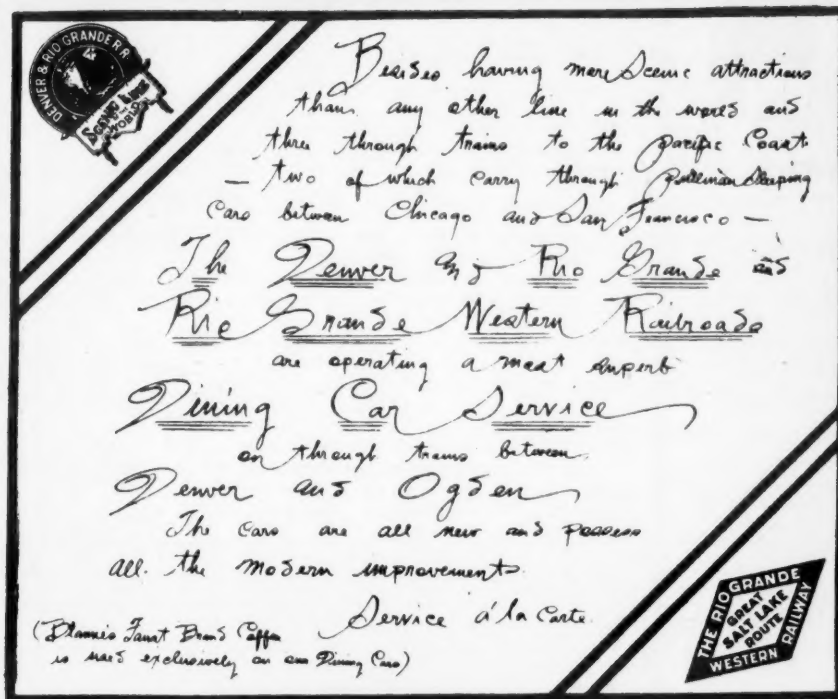 DENVER & RIO GRANDE R.R.
SCENIC LINE
OF THE
WORLD
Besides having more Scenic attractions
than any other line in the world and
three through trains to the Pacific Coast
— two of which carry through Pullman Sleeping
Cars between Chicago and San Francisco —
The Denver and Rio Grande and
Rio Grande Western Railroads
are operating a most superb
Dining Car Service
on through trains between
Denver and Ogden
The Cars are all new and possess
all the modern improvements.
Service á la Carte.
(Blanke's Faust Brand Coffee
is used exclusively on our Dining Cars)
THE RIO GRANDE
WESTERN RAILWAY
GREAT
SALT LAKE
ROUTE